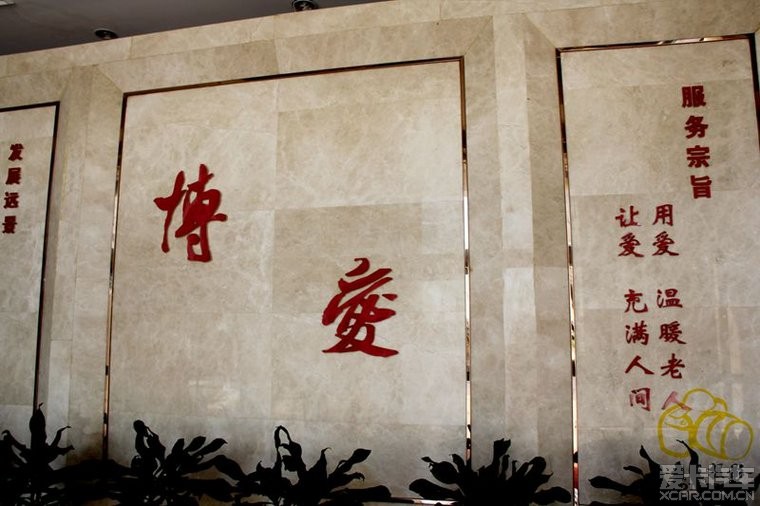 发展远景
博
爱
服务宗旨
用爱 温暖老人
让爱 充满人间
爱卡汽车
XCAR.COM.CN